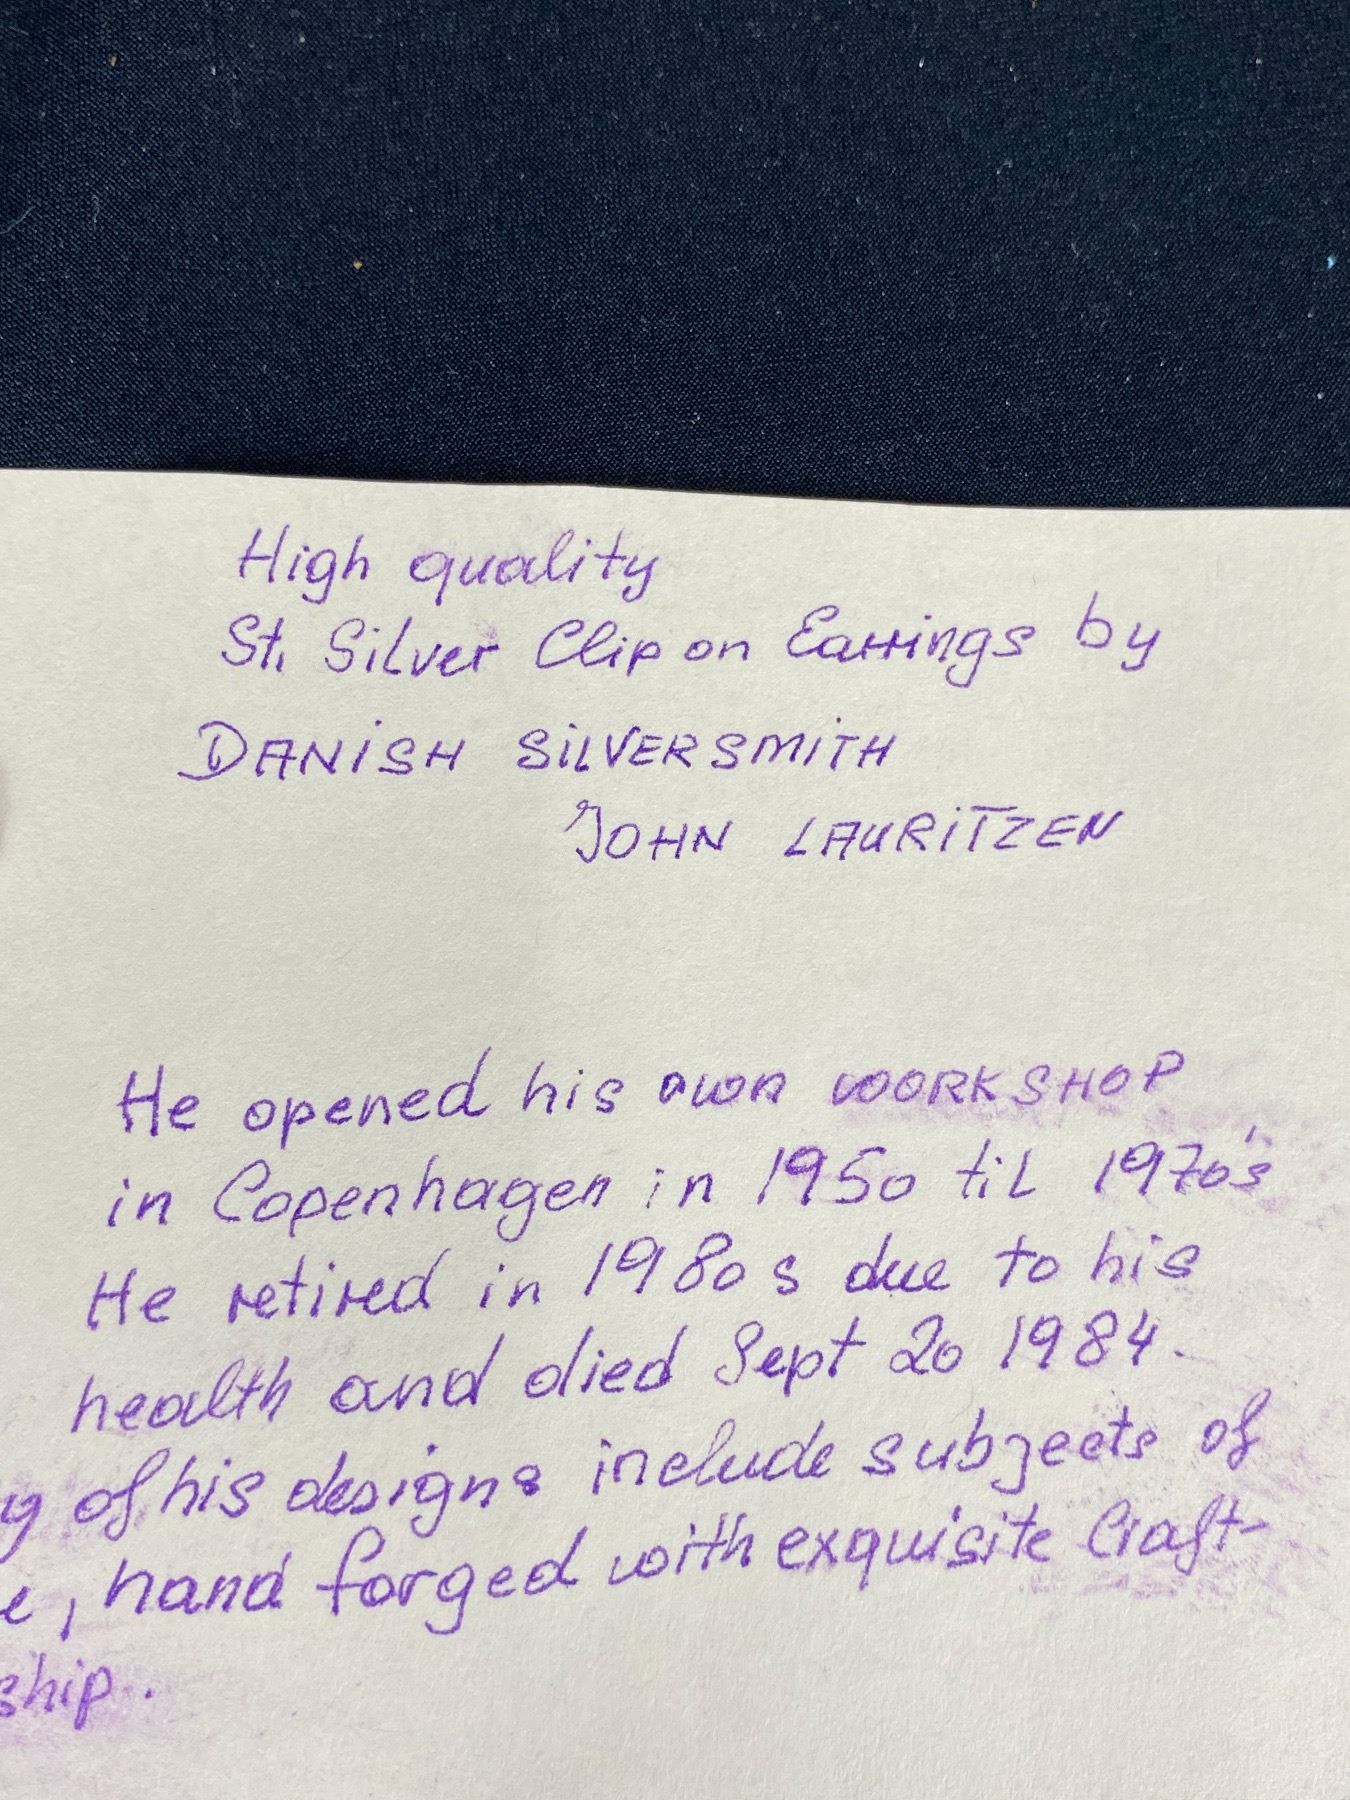 High quality
St. Silver Clip on Earrings by
DANISH SILVERSMITH
JOHN LAURITZEN
He opened his own WORKSHOP
in Copenhagen in 1950 til 1970's
He retired in 1980s due to his
health and died Sept 20 1984.
of his designs include subjects of
, hand forged with exquisite Craft-
ship.